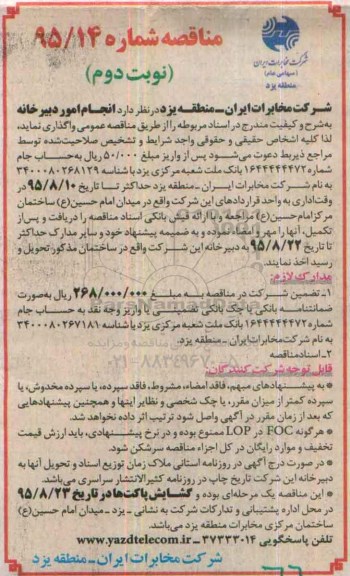 شرکت مخابرات ایران
(سهامی عام)
منطقه یزد
مناقصه شماره ۹۵/۱۴
(نوبت دوم)
شرکت مخابرات ایران ـ منطقه یزد در نظر دارد انجام امور دبیرخانه
به شرح و کیفیت مندرج در اسناد مربوطه را از طریق مناقصه عمومی واگذاری نماید،
لذا کلیه اشخاص حقیقی و حقوقی واجد شرایط و تشخیص صلاحیت شده توسط
مراجع ذیربط دعوت می‌شود پس از واریز مبلغ ۵۰/۰۰۰ ریال به حساب جام
شماره ۱۶۴۴۴۴۴۴۷۲ بانک ملت شعبه مرکزی یزد با شناسه ۳۴۰۰۰۸۰۲۶۸۱۲۹
به نام شرکت مخابرات ایران ـ منطقه یزد حداکثر تا تاریخ ۹۵/۸/۱۰ در
وقت اداری به واحد قراردادهای این شرکت واقع در میدان امام حسین(ع) ساختمان
مرکز امام حسین(ع) مراجعه و با ارائه فیش بانکی اسناد مناقصه را دریافت و پس از
تکمیل، آنها را مهر و امضاء نموده و به ضمیمه پیشنهاد خود و سایر مدارک حداکثر
تا تاریخ ۹۵/۸/۲۲ به دبیرخانه این شرکت واقع در ساختمان مذکور تحویل و
رسید اخذ نمایند.
مدارک لازم:
۱ـ تضمین شرکت در مناقصه به مبلغ ۲۶۸/۰۰۰/۰۰۰ ریال به‌صورت
ضمانتنامه بانکی یا چک بانکی تضمینی یا واریز وجه نقد به حساب جام
شماره ۱۶۴۴۴۴۴۴۷۲ بانک ملت شعبه مرکزی یزد با شناسه ۳۴۰۰۰۸۰۲۶۷۱۸۱
به نام شرکت مخابرات ایران ـ منطقه یزد.
۲ـ اسناد مناقصه
قابل توجه شرکت کنندگان:
* به پیشنهادهای مبهم، فاقد امضاء، مشروط، فاقد سپرده، یا سپرده مخدوش، یا
سپرده کمتر از میزان مقرر، یا چک شخصی و نظایر اینها و همچنین پیشنهادهایی
که بعد از زمان مقرر در آگهی واصل شود ترتیب اثر داده نخواهد شد.
* هرگونه FOC در LOP ممنوع بوده و در نرخ پیشنهادی، باید ارزش قیمت
تخفیف و موارد رایگان در کل اجزاء مناقصه سرشکن شود.
* در صورت درج آگهی در روزنامه استانی ملاک زمان توزیع اسناد و تحویل آنها به
دبیرخانه این شرکت تاریخ چاپ در روزنامه کثیرالانتشار سراسری می‌باشد.
* این مناقصه یک مرحله‌ای بوده و گشایش پاکت‌ها در تاریخ ۹۵/۸/۲۳
در محل اداره پشتیبانی و تدارکات شرکت به نشانی ـ یزد ـ میدان امام حسین(ع)
ساختمان مرکزی مخابرات منطقه یزد می‌باشد.
تلفن پاسخگویی ۳۷۲۳۳۰۱۴ ـ www.yazdtelecom.ir
شرکت مخابرات ایران ـ منطقه یزد